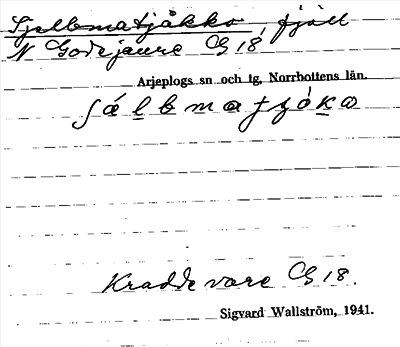 Sjelbmatjåkko, fjäll
N Godejaure CG 18
Arjeplogs sn och tg, Norrbottens län.
Kraddevare CG 18.
Sigvard Wallström, 1941.